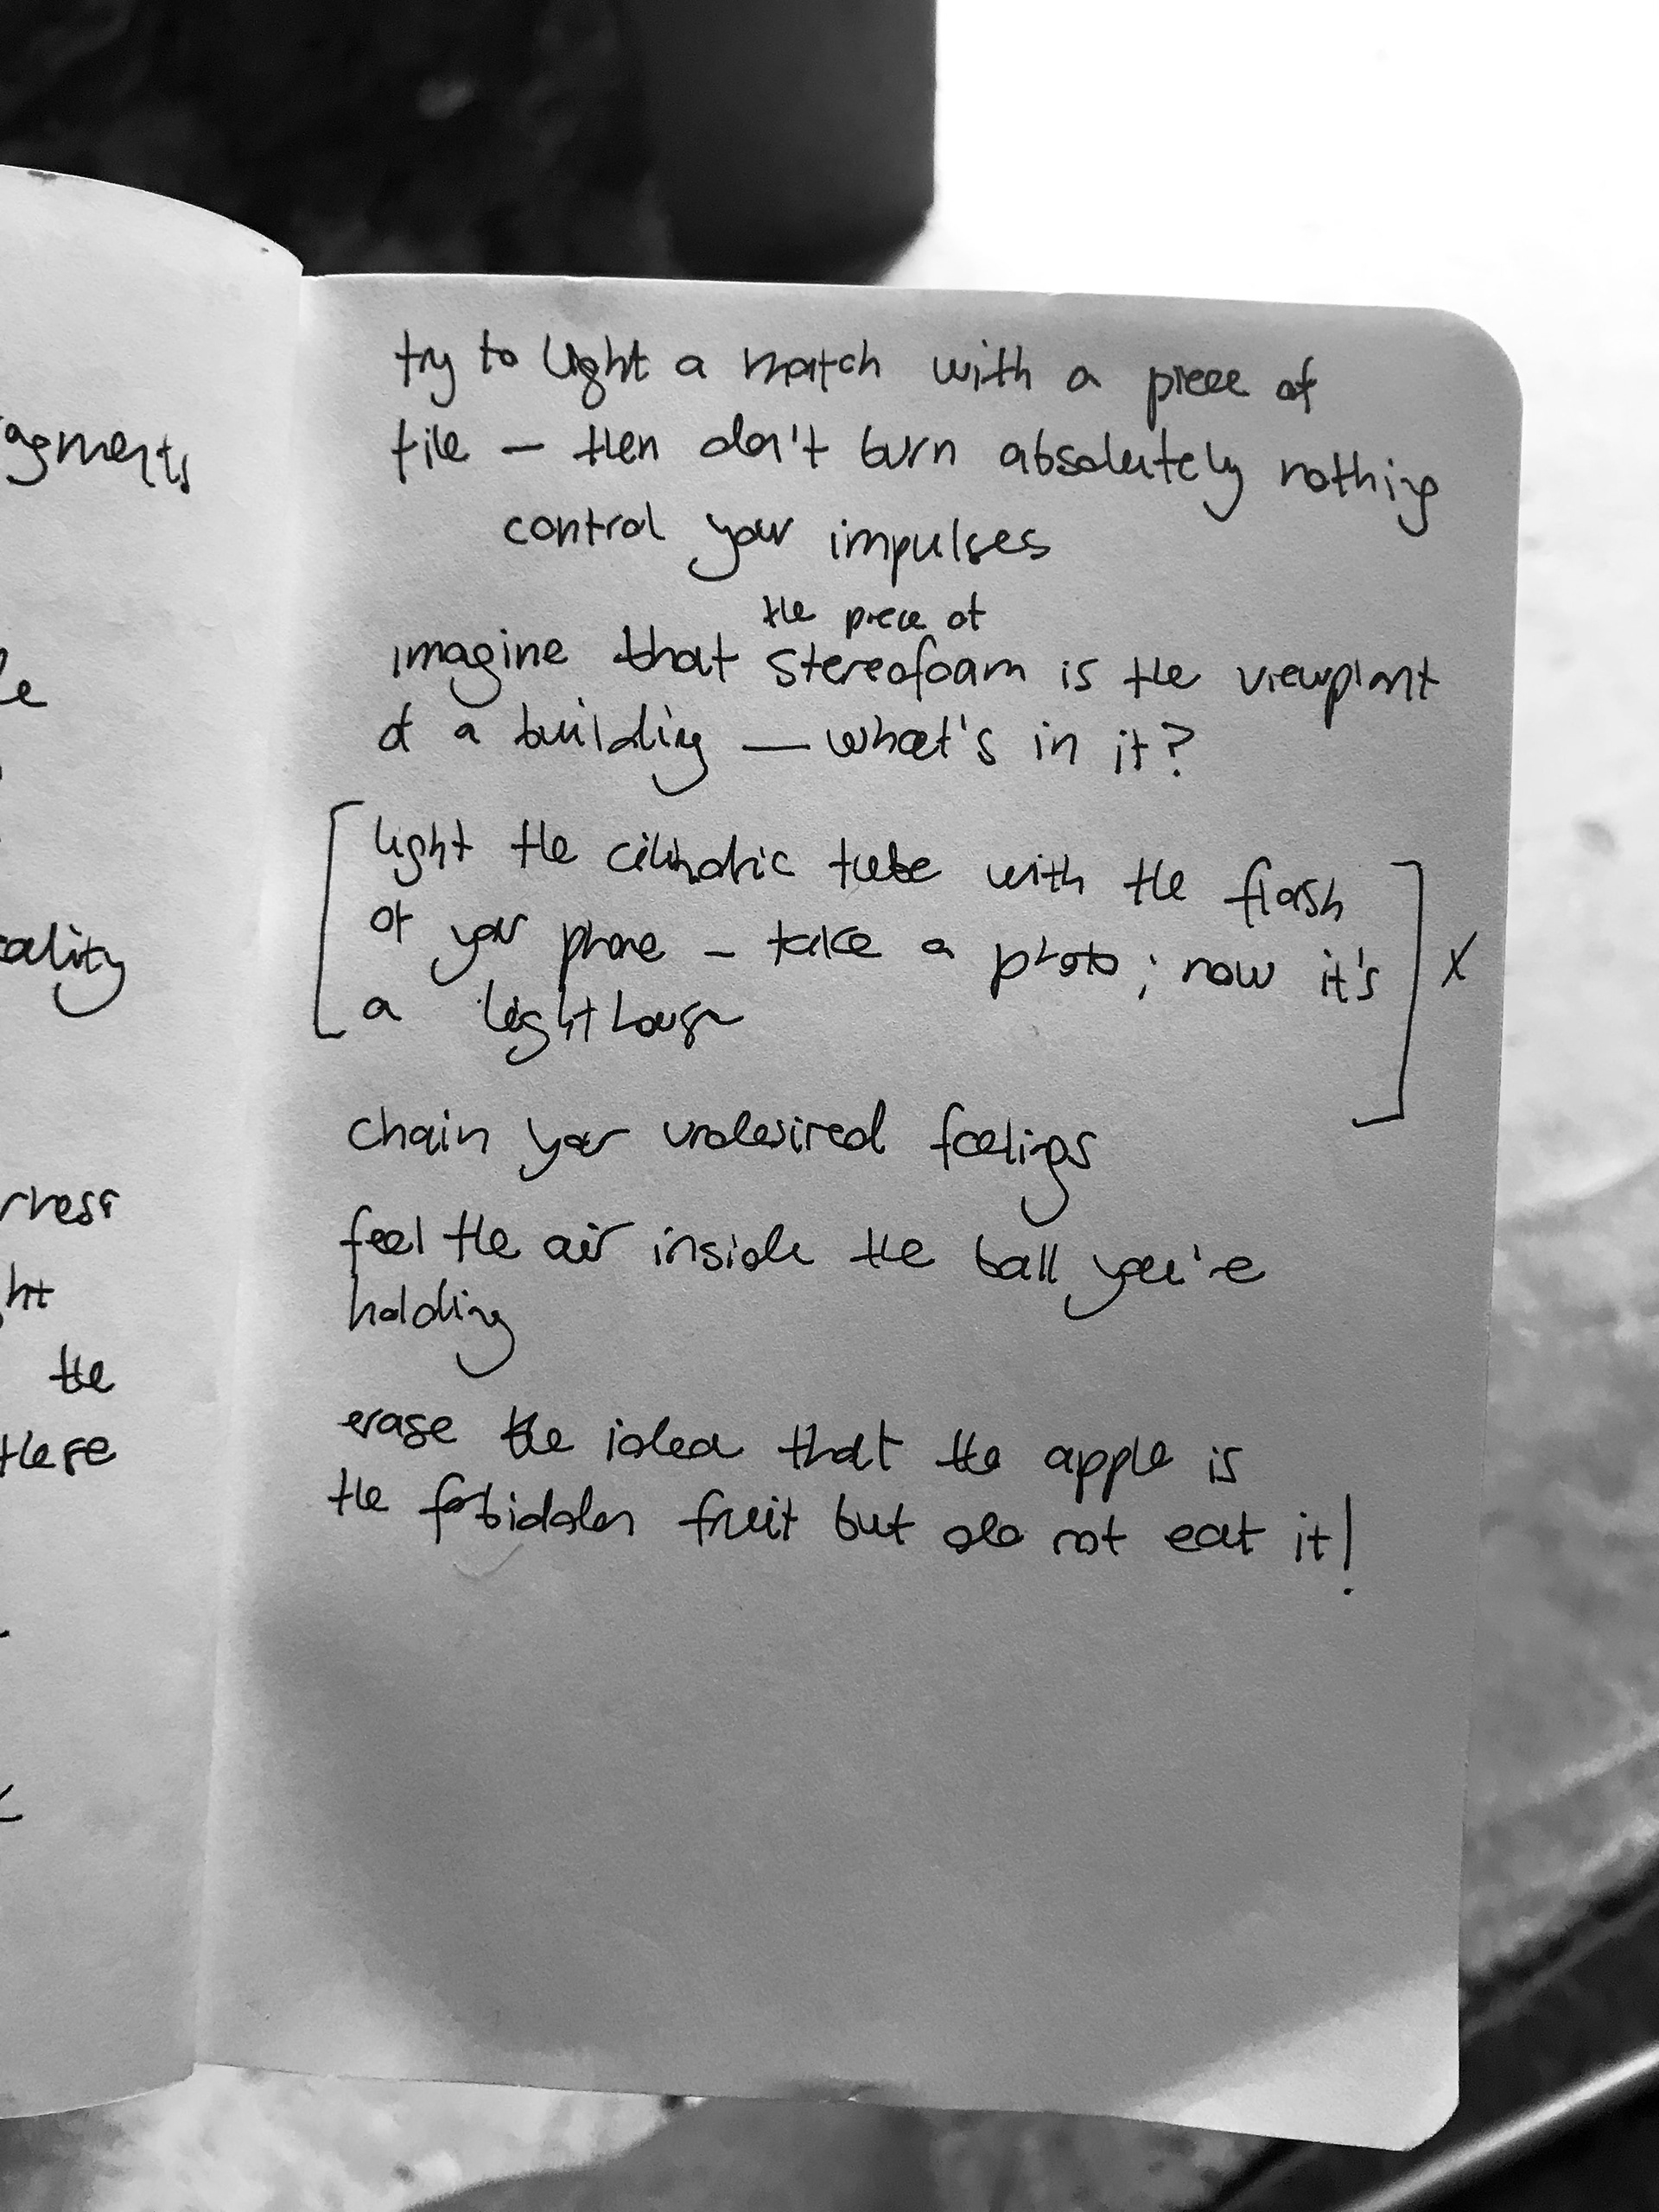 agments
le
ality
rness
ht
the
these
try to light a match with a piece of
tile — then don't burn absolutely nothing
control your impulses
the piece of
imagine that stereofoam is the viewpoint
of a building — what's in it?
[light the cilindric tube with the flash
of your phone — take a photo; now it's] x
a lighthouse
chain your undesired feelings
feel the air inside the ball you're
holding
erase the idea that the apple is
the forbidden fruit but do not eat it!